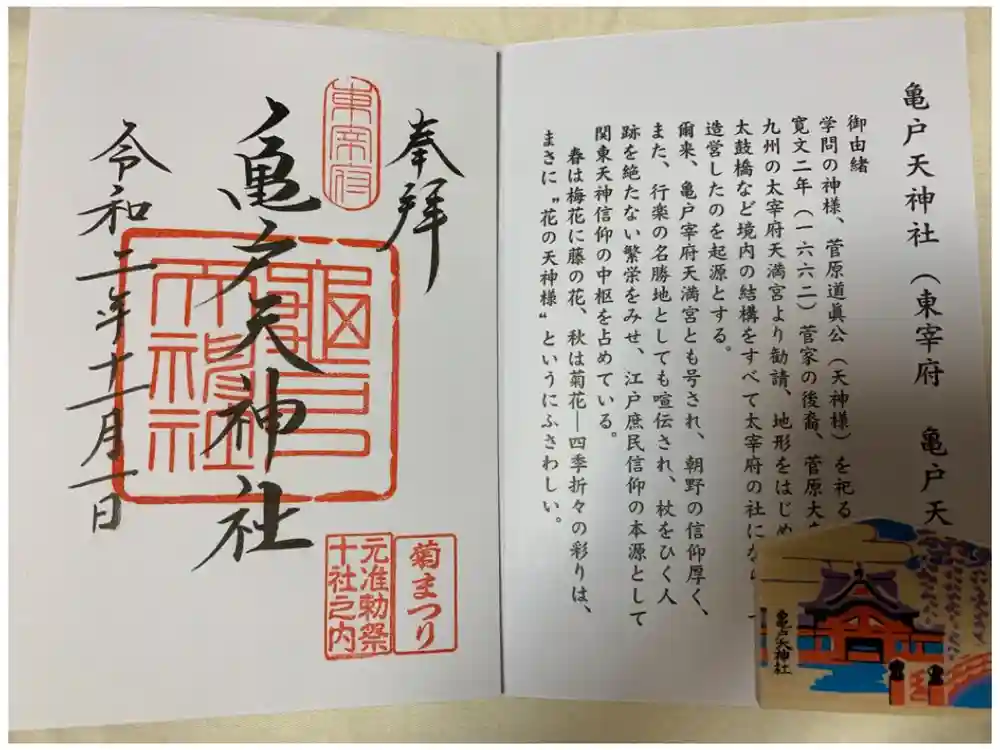 亀戸天神社（東宰府　亀戸天
御由緒
学問の神様、菅原道眞公（天神様）を祀る
寛文二年（一六六二）菅家の後裔、菅原大
九州の太宰府天満宮より勧請、地形をはじめ
太鼓橋など境内の結構をすべて太宰府の社にな
造営したのを起源とする。
爾来、亀戸宰府天満宮とも号され、朝野の信仰厚く、
また、行楽の名勝地としても喧伝され、杖をひく人
跡を絶たない繁栄をみせ、江戸庶民信仰の本源として
関東天神信仰の中枢を占めている。
春は梅花に藤の花、秋は菊花―四季折々の彩りは、
まさに〝花の天神様〟というにふさわしい。
亀戸天神社
奉拝
東宰府
亀戸天神社
令和二年十一月一日
菊まつり
元准勅祭
十社之内